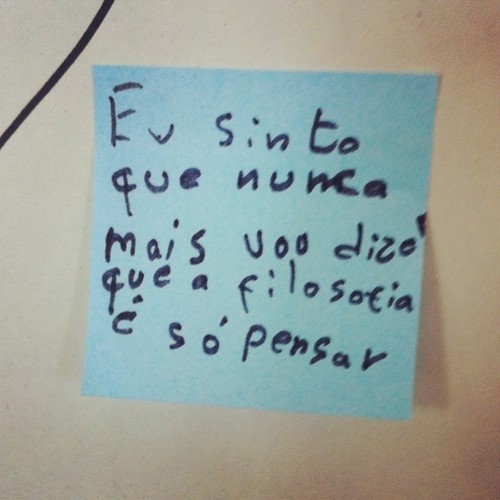 Eu sinto
que nunca
mais voo dizer
que a filosofia
é só pensar